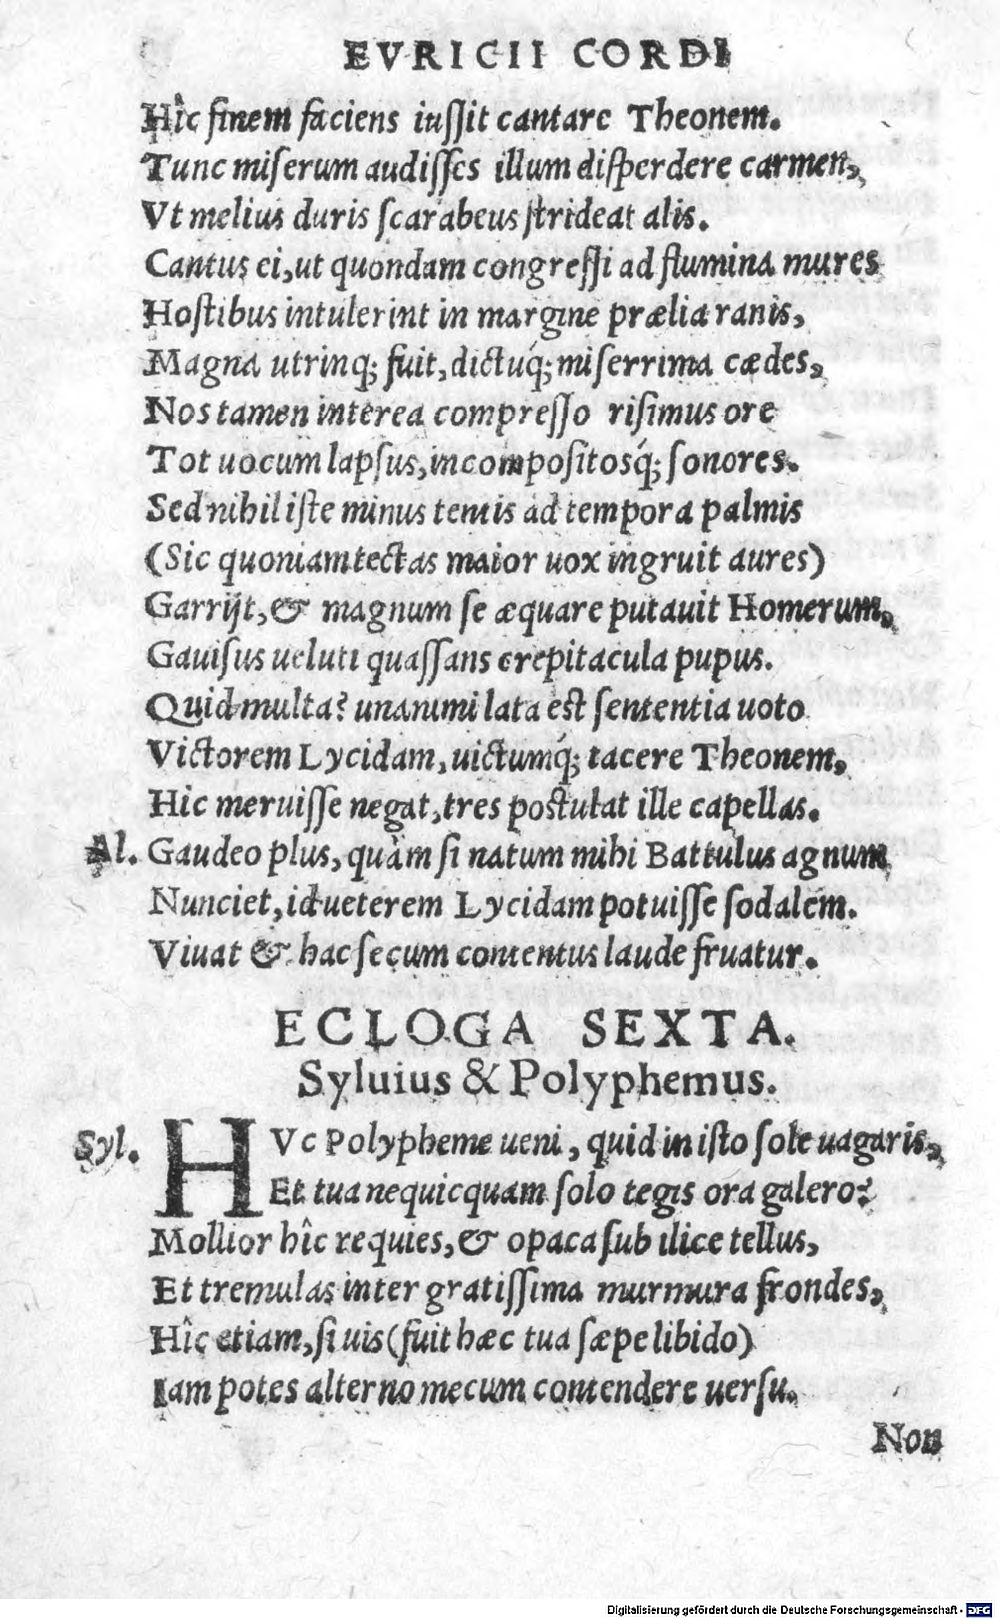 EVRICII CORDI
Hîc finem faciens iuſſit cantare Theonem.
Tunc miſerum audiſſes illum diſperdere carmen,
Vt melius duris ſcarabeus ſtrideat alis.
Cantus ei, ut quondam congreſſi ad flumina mures
Hoſtibus intulerint in margine prælia ranis,
Magna utrinq; fuit, dictuq́; miſerrima cædes,
Nos tamen interea compreſſo riſimus ore
Tot uocum lapſus, incompoſitosq́; ſonores.
Sed nihil iſte minus tentis ad tempora palmis
(Sic quoniam tectas maior uox ingruit aures)
Garrijt, & magnum ſe æquare putauit Homerum,
Gauiſus ueluti quaſſans crepitacula pupus.
Quid multa? unanimi lata eſt ſententia uoto
Victorem Lycidam, uictumq́; tacere Theonem,
Hic meruiſſe negat, tres poſtulat ille capellas.
Al. Gaudeo plus, quàm ſi natum mihi Battulus agnum
Nunciet, id ueterem Lycidam potuiſſe ſodalem.
Viuat & hac ſecum contentus laude fruatur.
ECLOGA SEXTA.
Syluius & Polyphemus.
Syl. HVc Polypheme ueni, quid in iſto ſole uagaris,
Et tua nequicquam ſolo tegis ora galero?
Mollior hîc requies, & opaca ſub ilice tellus,
Et tremulas inter gratiſſima murmura frondes,
Hîc etiam, ſi uis (fuit hæc tua ſæpe libido)
Iam potes alterno mecum contendere uerſu.
Non
Digitalisierung gefördert durch die Deutsche Forschungsgemeinschaft - DFG